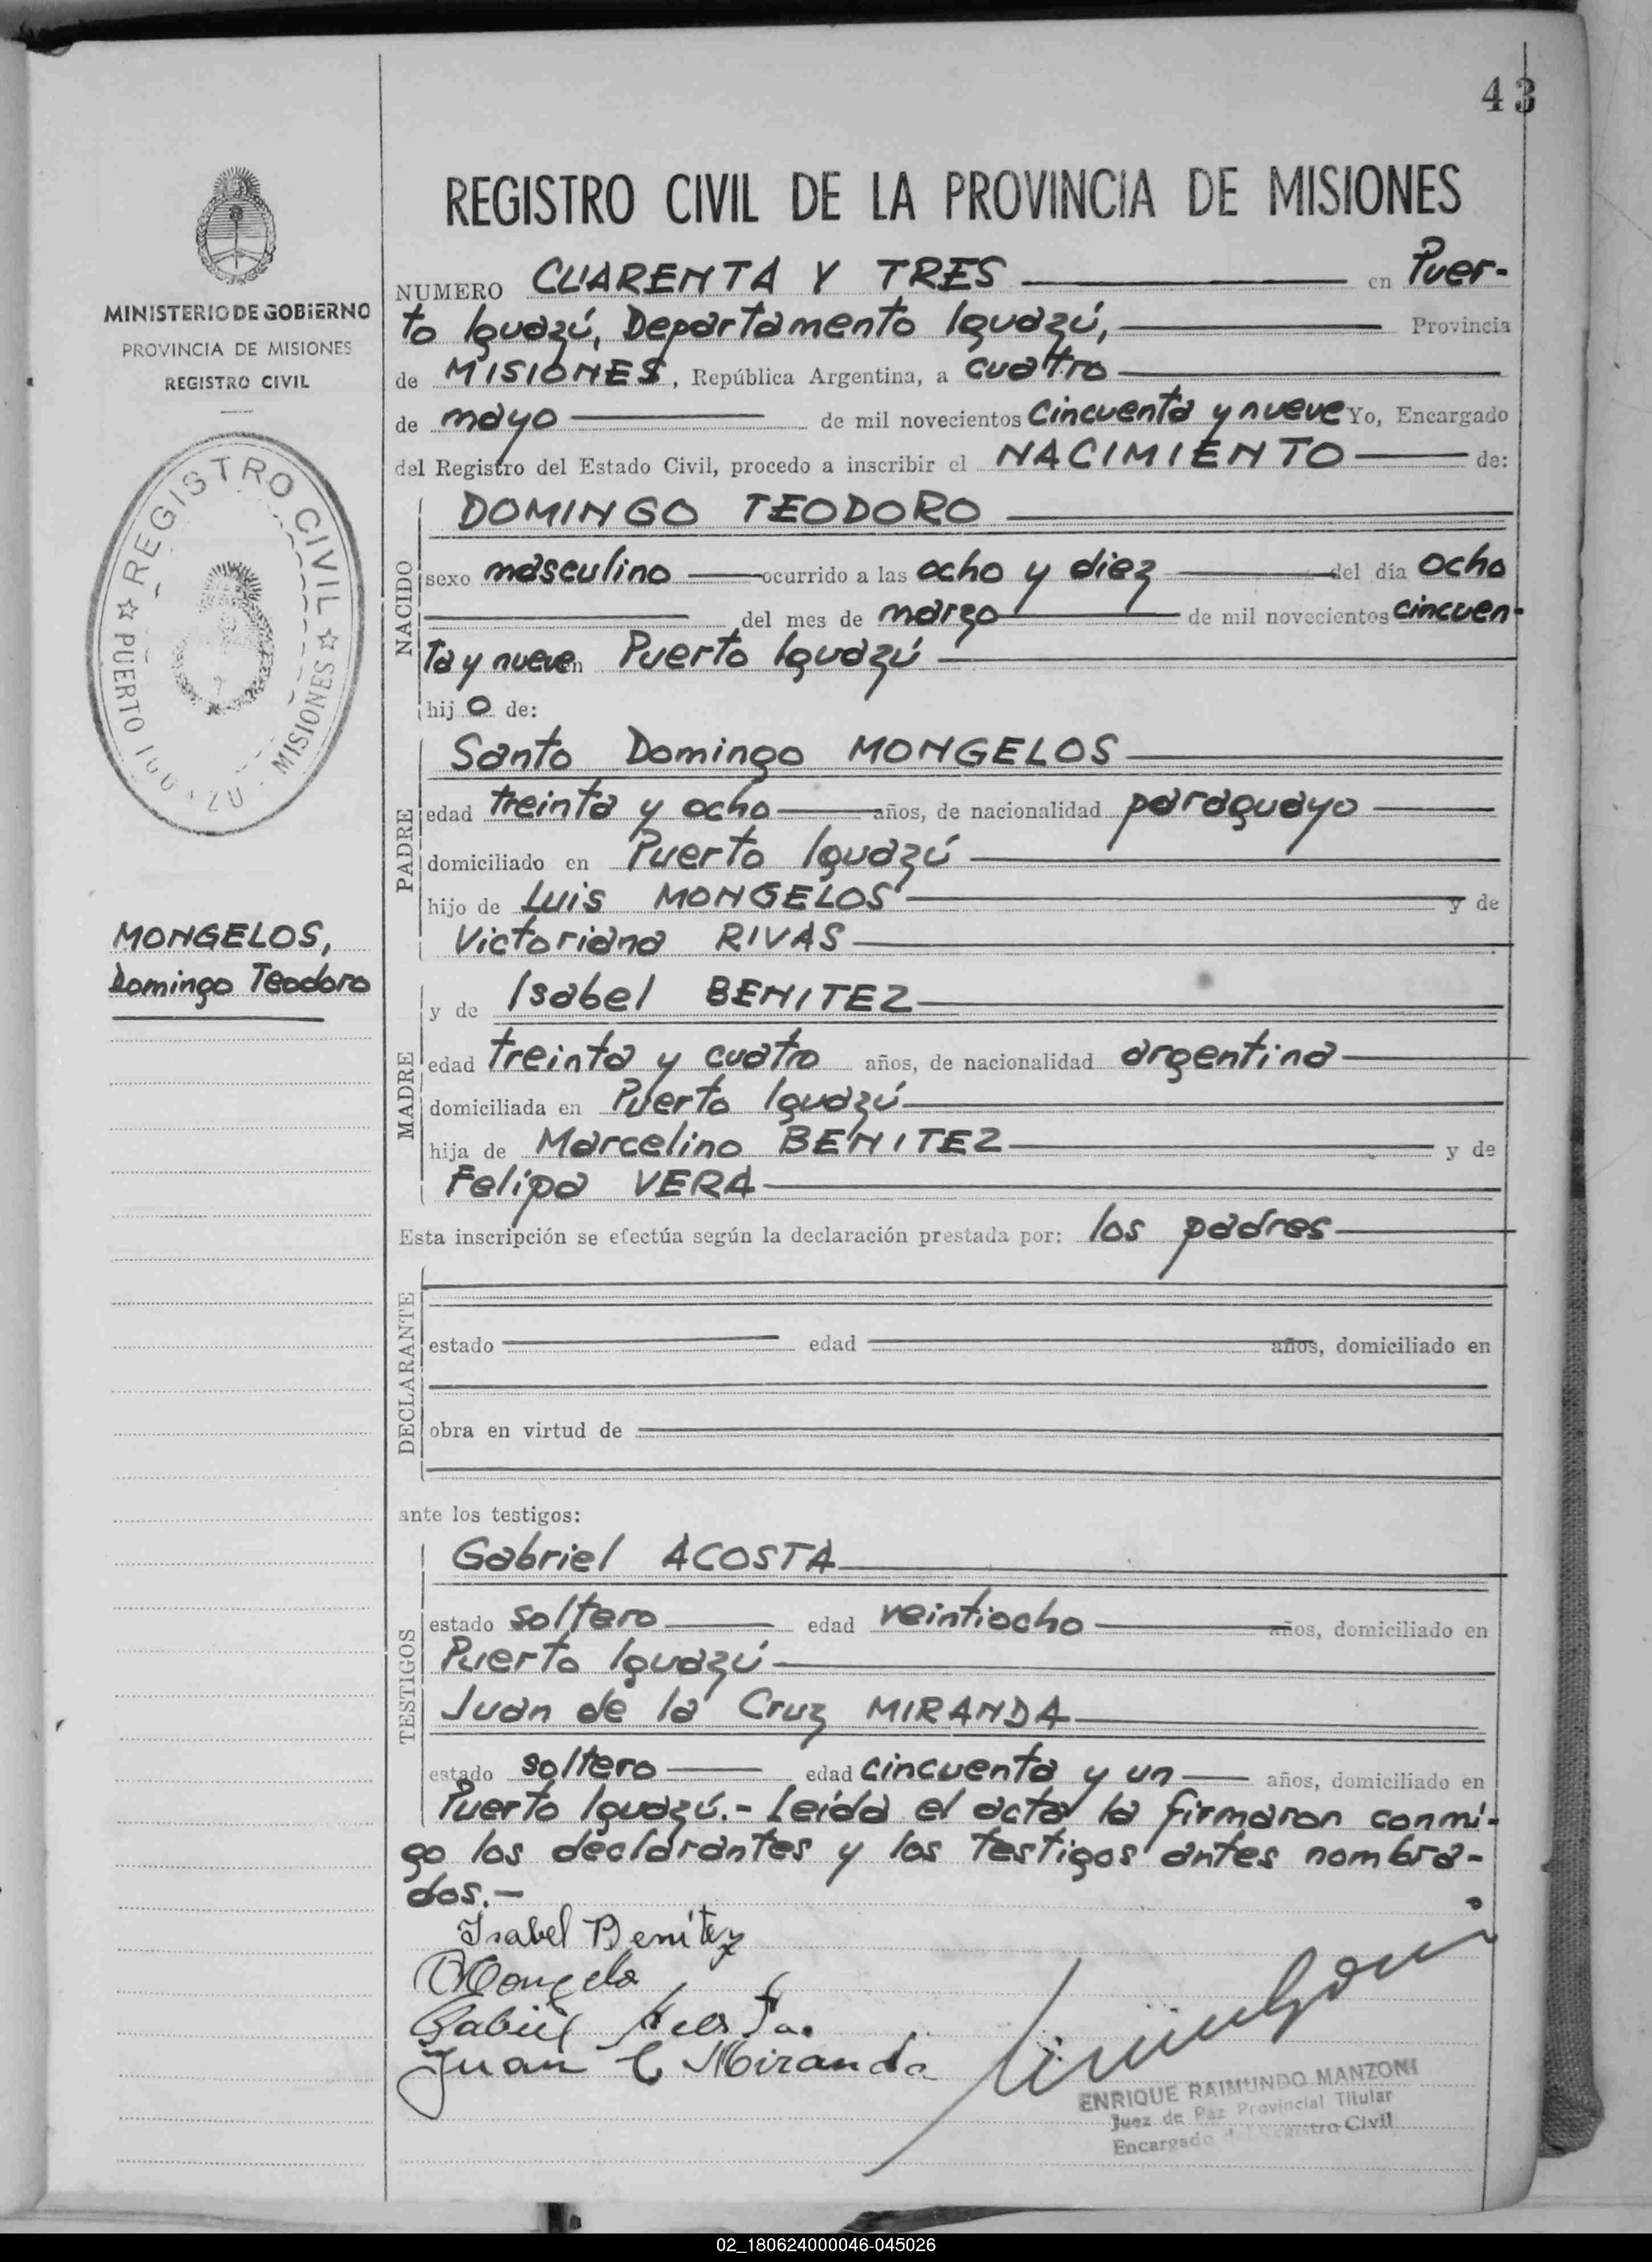 43
REGISTRO CIVIL DE LA PROVINCIA DE MISIONES
MINISTERIO DE GOBIERNO
PROVINCIA DE MISIONES
REGISTRO CIVIL
REGISTRO CIVIL
PUERTO IGUAZU - MISIONES
MONGELOS,
Domingo Teodoro
NUMERO CUARENTA Y TRES en Puer-
to Iguazú, Departamento Iguazú, Provincia
de MISIONES, República Argentina, a cuatro
de mayo de mil novecientos cincuenta y nueve Yo, Encargado
del Registro del Estado Civil, procedo a inscribir el NACIMIENTO de:
NACIDO
DOMINGO TEODORO
sexo masculino ocurrido a las ocho y diez del día ocho
del mes de marzo de mil novecientos cincuen-
ta y nueve en Puerto Iguazú
hijo de:
PADRE
Santo Domingo MONGELOS
edad treinta y ocho años, de nacionalidad paraguayo
domiciliado en Puerto Iguazú
hijo de Luis MONGELOS y de
Victoriana RIVAS
MADRE
y de Isabel BENITEZ
edad treinta y cuatro años, de nacionalidad argentina
domiciliada en Puerto Iguazú
hija de Marcelino BENITEZ y de
Felipa VERA
Esta inscripción se efectúa según la declaración prestada por: los padres
DECLARANTE
estado edad años, domiciliado en
obra en virtud de
ante los testigos:
TESTIGOS
Gabriel ACOSTA
estado soltero edad veintiocho años, domiciliado en
Puerto Iguazú
Juan de la Cruz MIRANDA
estado soltero edad cincuenta y un años, domiciliado en
Puerto Iguazú.- Leída el acta la firmaron conmi-
go los declarantes y los testigos antes nombra-
dos.-
Isabel Benítez
Mongelo
Gabriel Acosta
Juan C Miranda
ENRIQUE RAIMUNDO MANZONI
Juez de Paz Provincial Titular
Encargado del Registro Civil
02_180624000046-045026